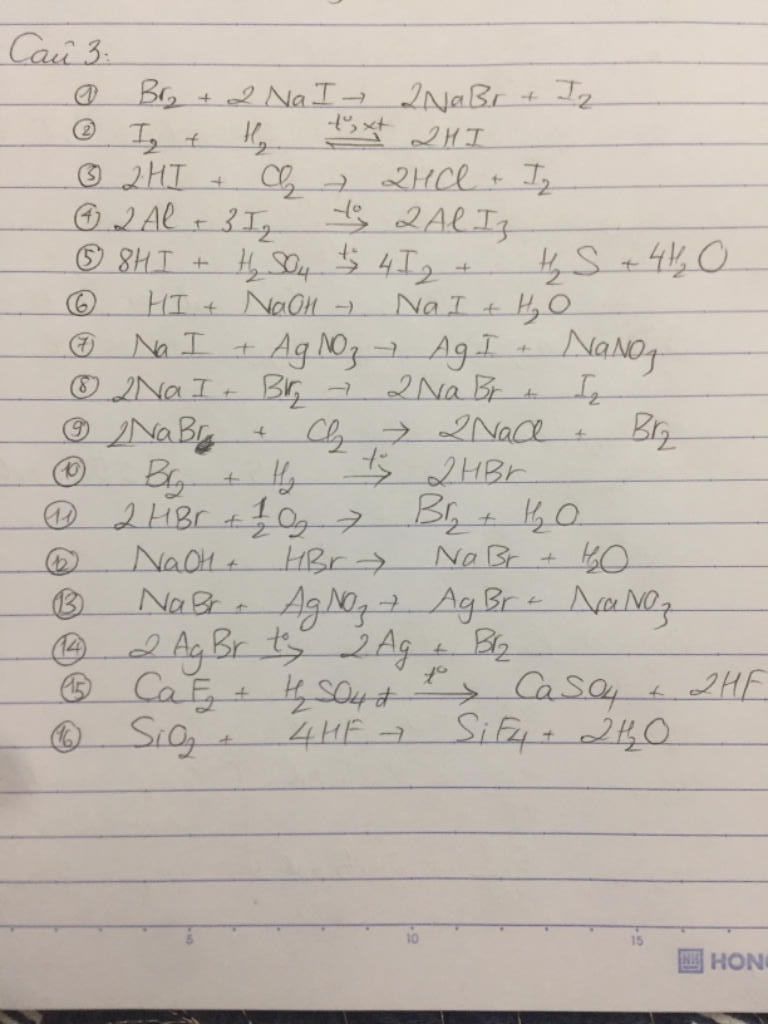 Câu 3:
① Br₂ + 2NaI → 2NaBr + I₂
② I₂ + H₂ ⇌ t°, xt 2HI
③ 2HI + Cl₂ → 2HCl + I₂
④ 2Al + 3I₂ t°→ 2AlI₃
⑤ 8HI + H₂SO₄ t°→ 4I₂ + H₂S + 4H₂O
⑥ HI + NaOH → NaI + H₂O
⑦ NaI + AgNO₃ → AgI + NaNO₃
⑧ 2NaI + Br₂ → 2NaBr + I₂
⑨ 2NaBr + Cl₂ → 2NaCl + Br₂
⑩ Br₂ + H₂ t°→ 2HBr
⑪ 2HBr + ½O₂ → Br₂ + H₂O
⑫ NaOH + HBr → NaBr + H₂O
⑬ NaBr + AgNO₃ → AgBr + NaNO₃
⑭ 2AgBr t°→ 2Ag + Br₂
⑮ CaF₂ + H₂SO₄đ t°→ CaSO₄ + 2HF
⑯ SiO₂ + 4HF → SiF₄ + 2H₂O
5 10 15
HONG